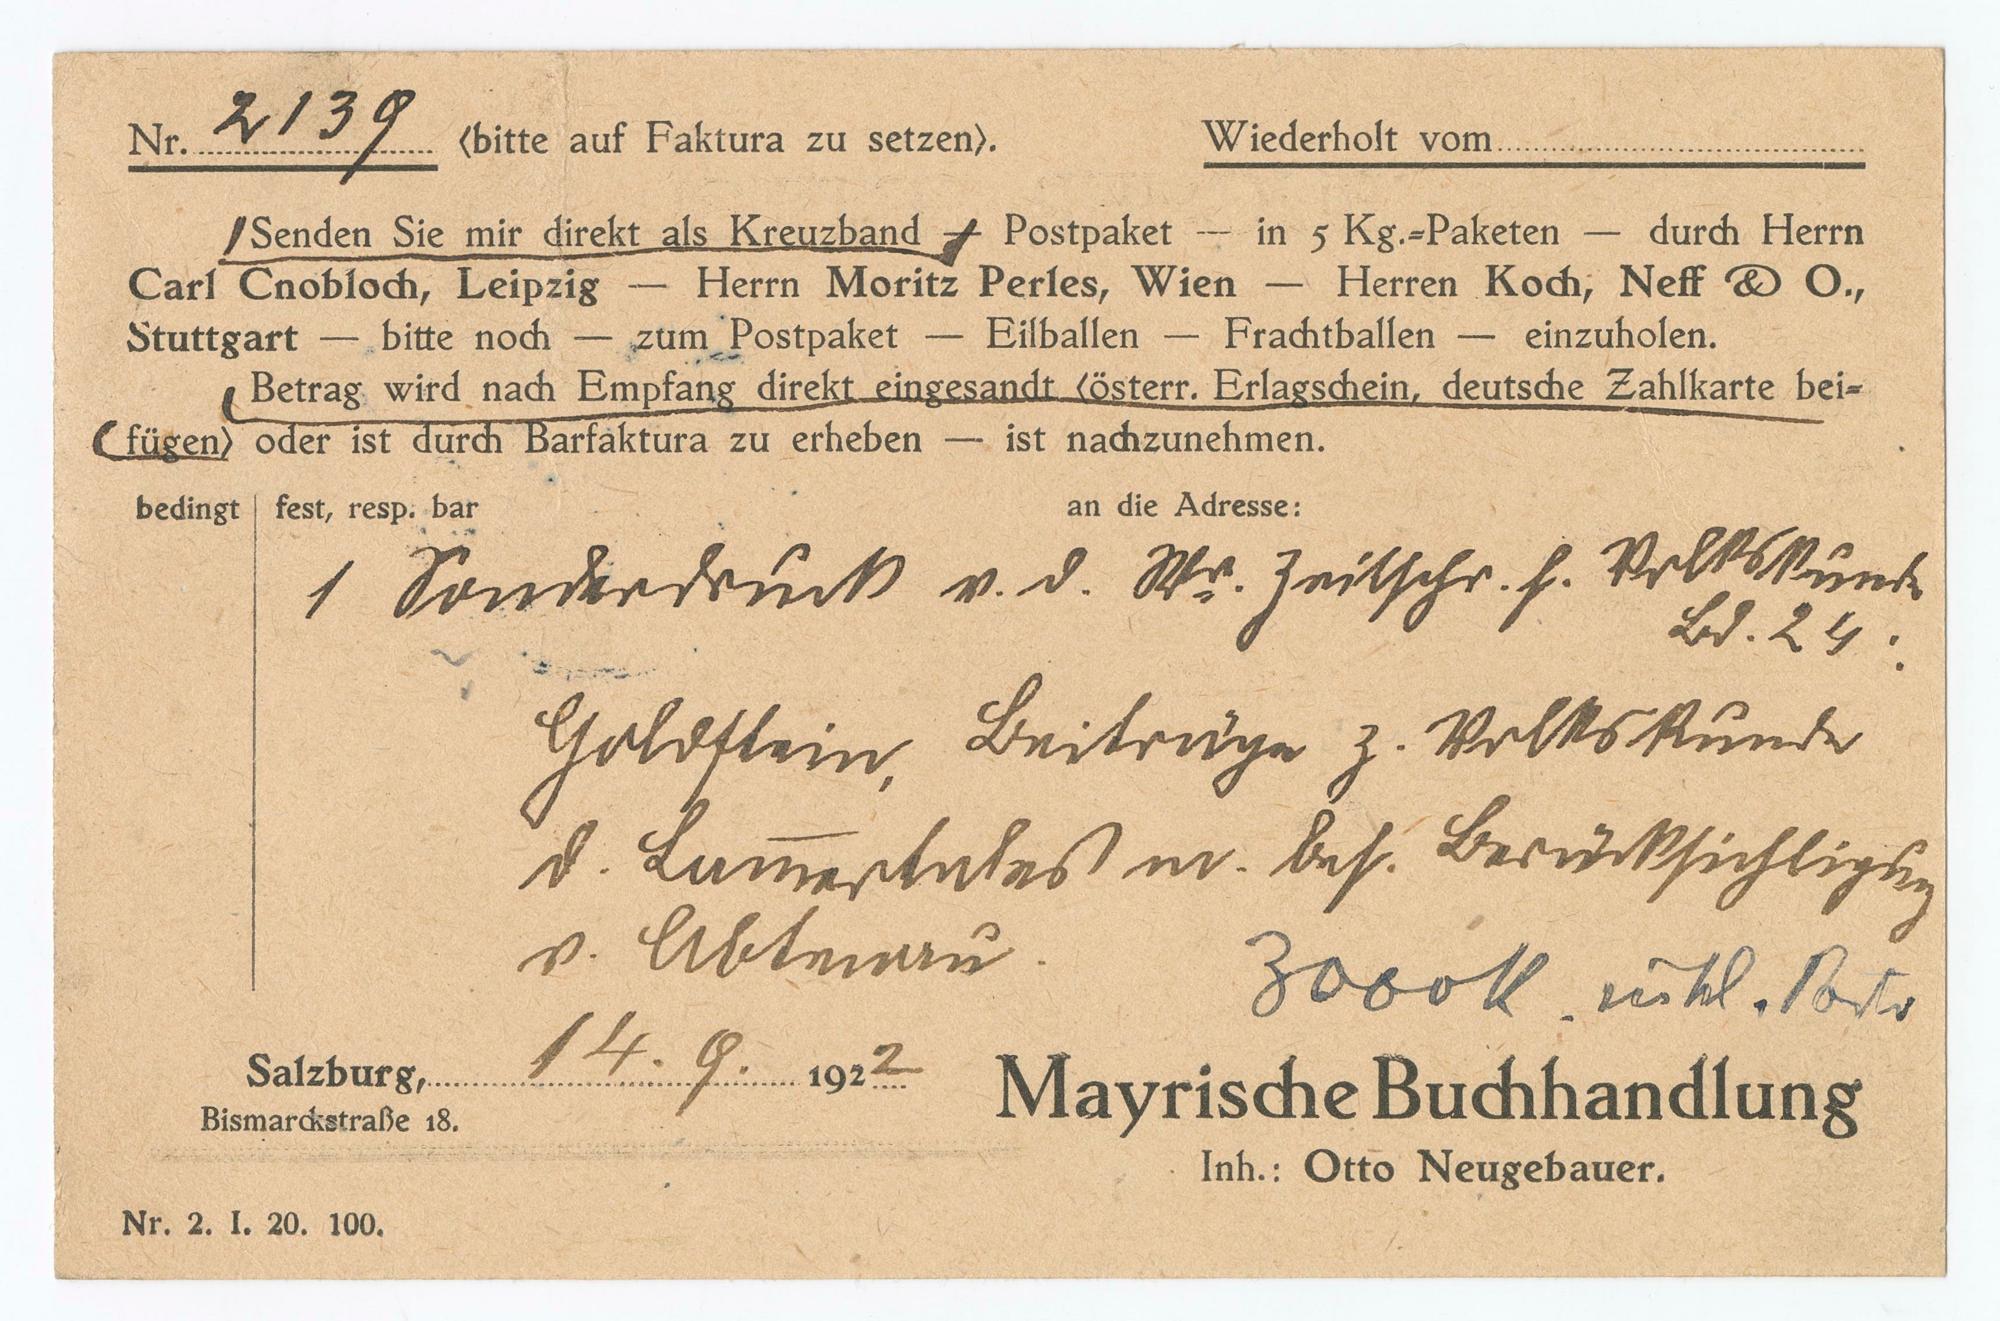 Nr. 2139 (bitte auf Faktura zu setzen). Wiederholt vom
Senden Sie mir direkt als Kreuzband — Postpaket — in 5 Kg.=Paketen — durch Herrn
Carl Cnobloch, Leipzig — Herrn Moritz Perles, Wien — Herren Koch, Neff & O.,
Stuttgart — bitte noch — zum Postpaket — Eilballen — Frachtballen — einzuholen.
Betrag wird nach Empfang direkt eingesandt (österr. Erlagschein, deutsche Zahlkarte bei=
fügen) oder ist durch Barfaktura zu erheben — ist nachzunehmen.
bedingt fest, resp. bar an die Adresse:
1 Sonderdruck v. d. Wr. Zeitschr. f. Volkskunde
Bd. 24:
Goldstein, Beiträge z. Volkskunde
d. Lam̅ertales m. bes. Berücksichtigung
v. Abtenau.
3000 K. Porto
Salzburg, 14. 9. 1922
Bismarckstraße 18.
Mayrische Buchhandlung
Inh.: Otto Neugebauer.
Nr. 2. I. 20. 100.